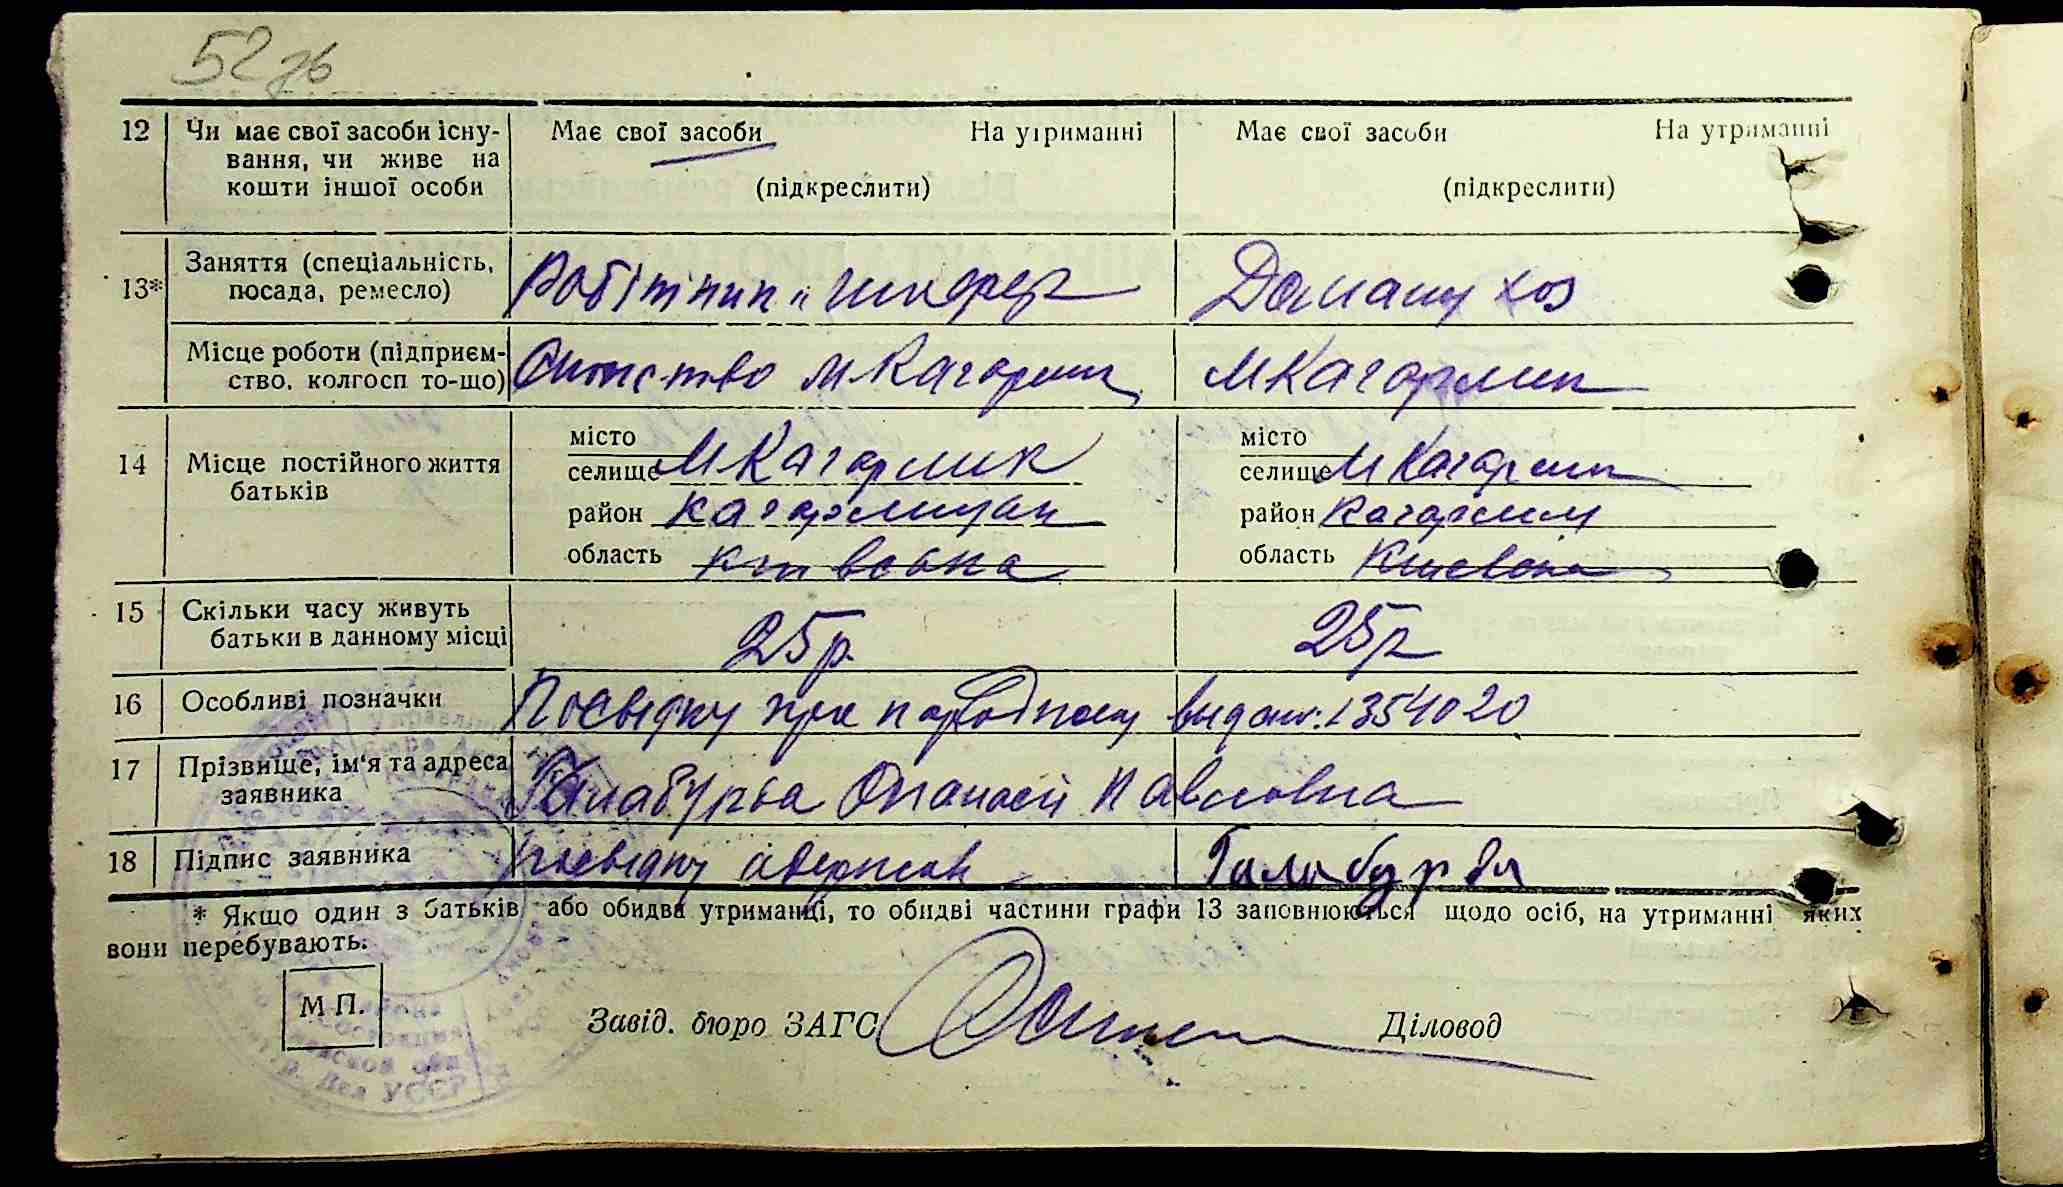 52 зв
12 Чи має свої засоби існу- Має свої засоби На утриманні Має свої засоби На утриманні
вання, чи живе на
кошти іншої особи (підкреслити) (підкреслити)
13* Заняття (спеціальність, Робітник шофер Домашн хоз
посада, ремесло)
Місце роботи (підприєм- м Кагарлик м Кагарлик
ство, колгосп то-що)
14 Місце постійного життя місто місто
батьків селище м Кагарлик селище м Кагарлик
район Кагарлицьк район Кагарлиц
область Київська область Київська
15 Скільки часу живуть 25 р. 25 р
батьки в данному місці
16 Особливі позначки Посвідку про видан. 1354020
17 Прізвище, ім'я та адреса Галабурда Опанасій Павловна
заявника
18 Підпис заявника посвідку одержав Галабурда
* Якщо один з батьків або обидва утриманці, то обидві частини графи 13 заповнюються щодо осіб, на утриманні яких
вони перебувають.
М П.
Завід. бюро ЗАГС Діловод